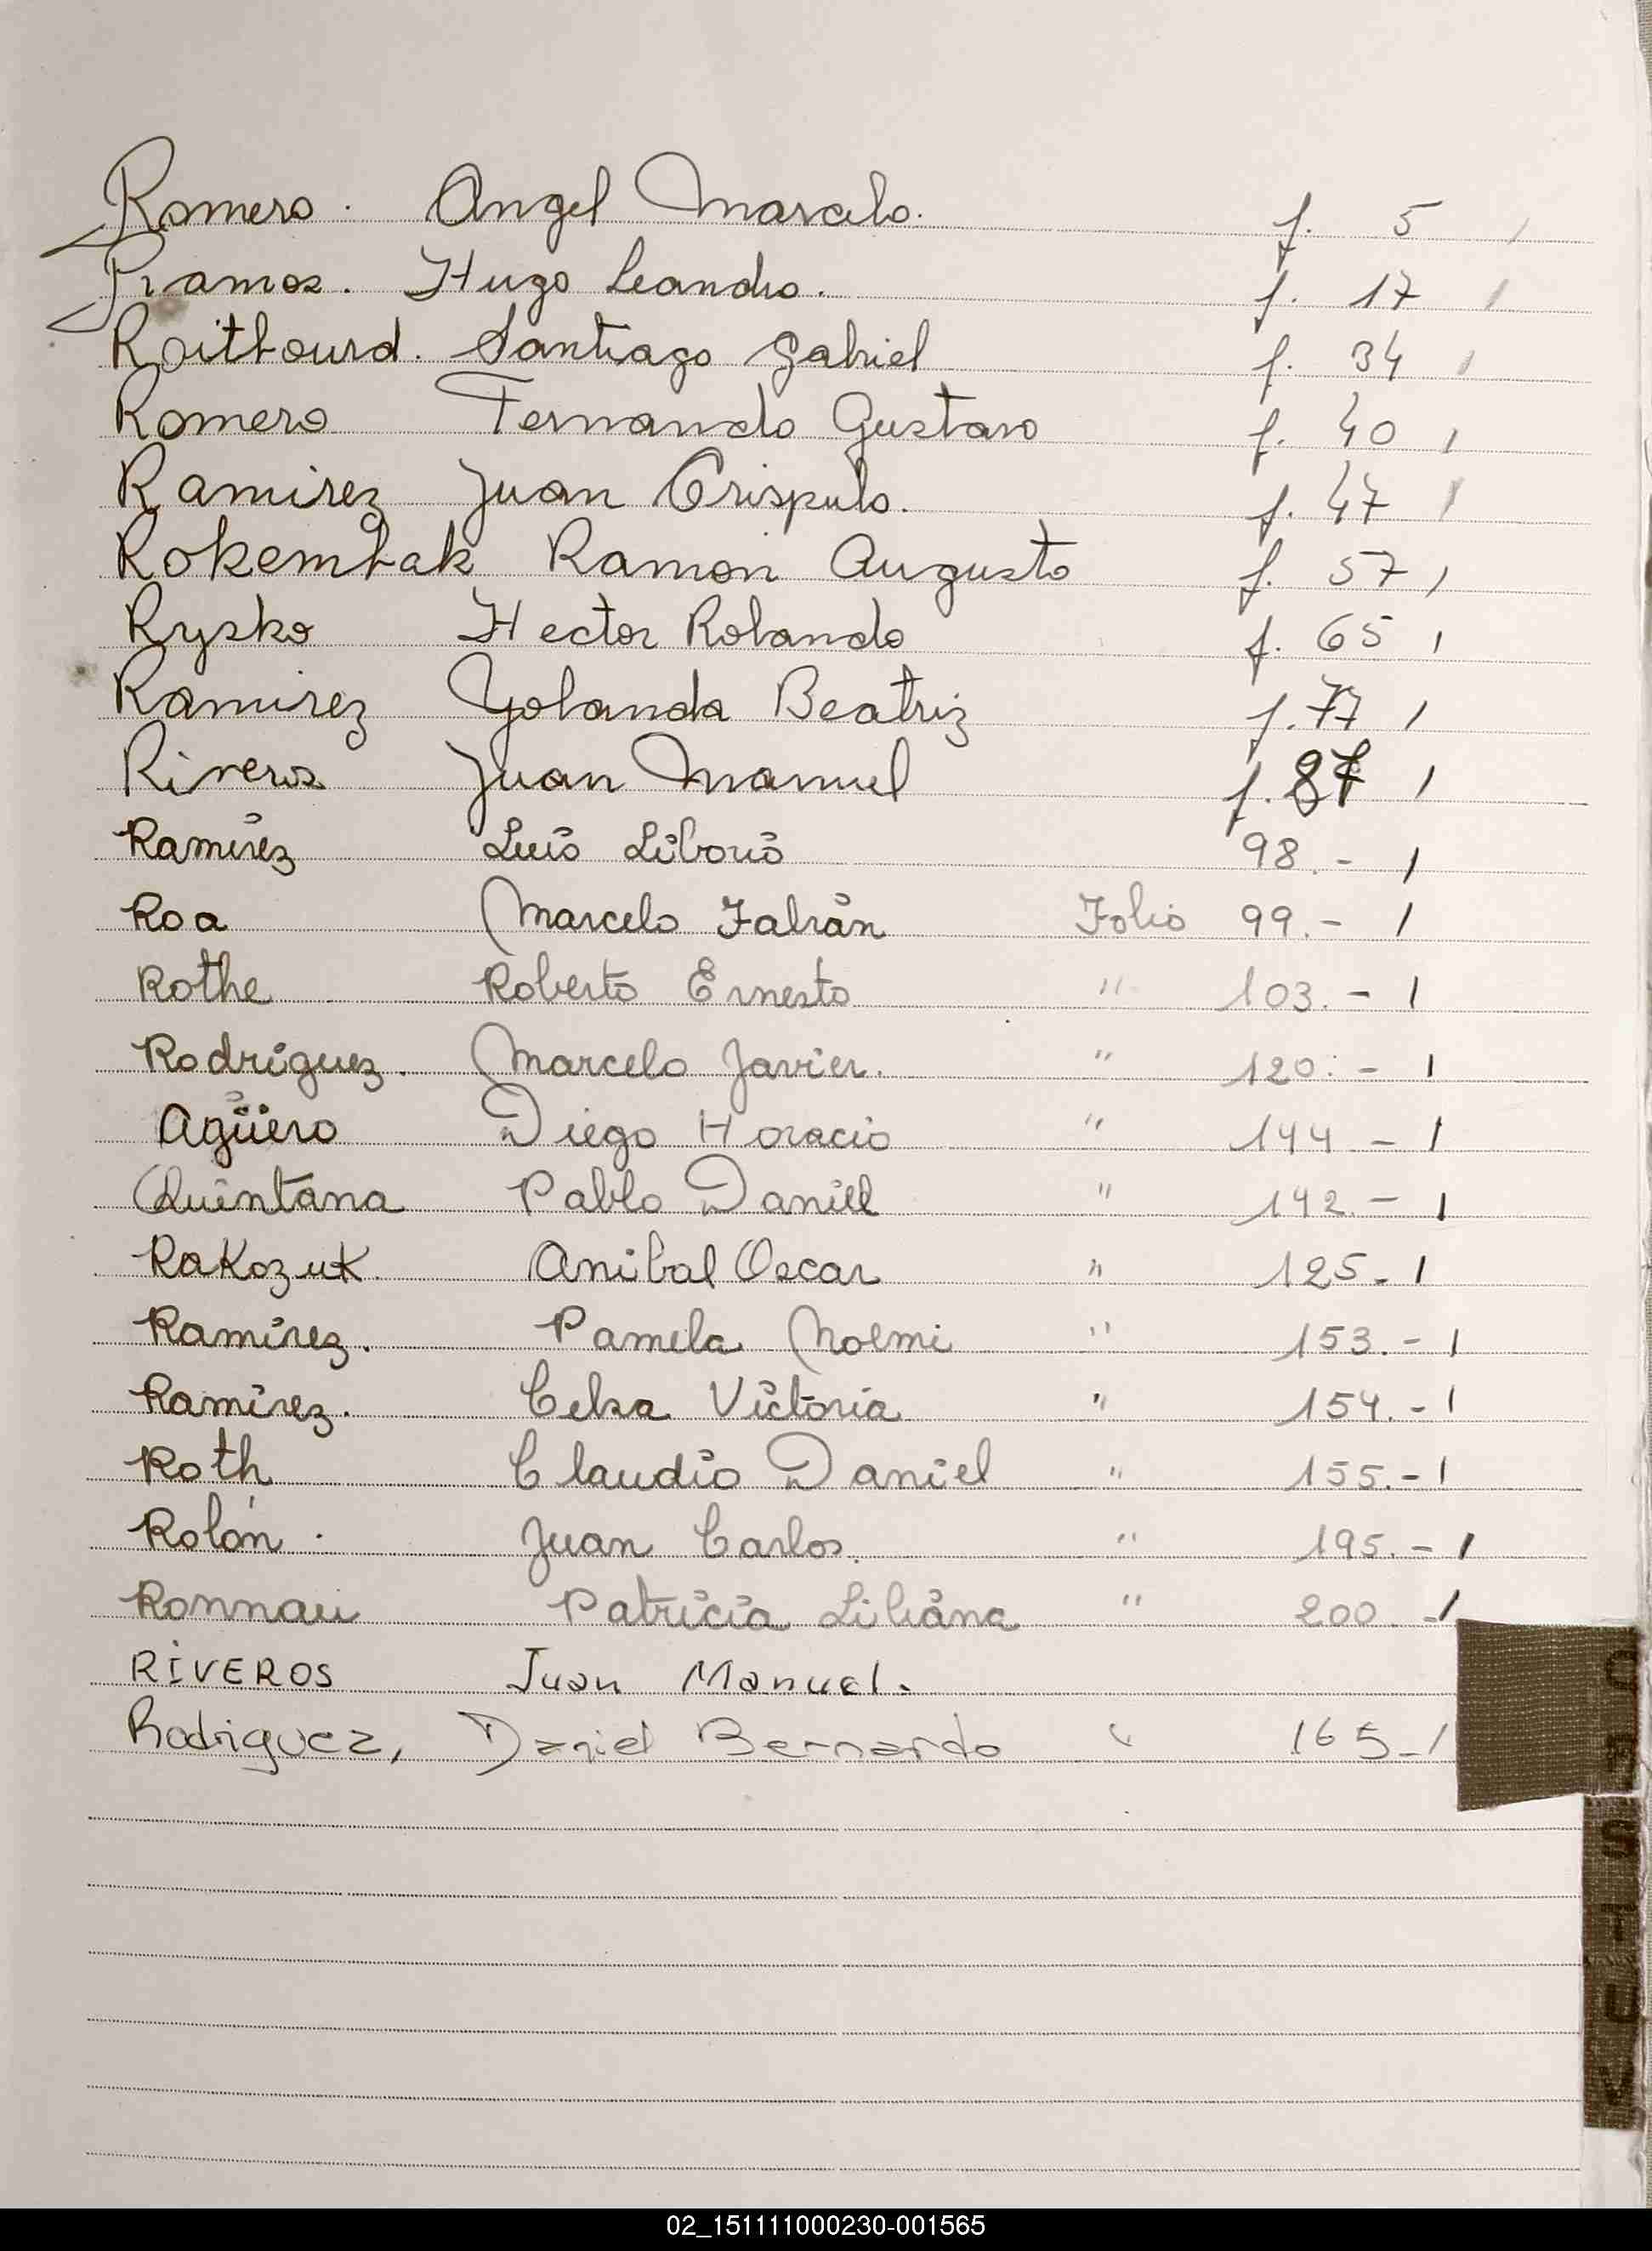 Romero. Angel Marcelo. f. 5 /
Ramos. Hugo Leandro. f. 17 /
Roitbourd. Santiago Gabriel f. 34 /
Romero Fernando Gustavo f. 40 /
Ramirez Juan Crispulo. f. 47 /
Rokembak Ramon Augusto f. 57 /
Rysko Hector Rolando f. 65 /
Ramirez Yolanda Beatriz f. 77 /
Riveros Juan Manuel f. 87 /
Ramírez Luis Liborio 98.- /
Roa Marcelo Fabián Folio 99.- /
Rothe Roberto Ernesto " 103.- /
Rodríguez. Marcelo Javier. " 120.- /
Agüero Diego Horacio " 144 - /
Quintana Pablo Daniel " 142.- /
Rakozuk. Anibal Oscar " 125.- /
Ramírez. Pamela Noemi " 153.- /
Ramírez. Celsa Victoria " 154.- /
Roth Claudio Daniel " 155.- /
Rolón. Juan Carlos. " 195.- /
Ronnau Patricia Liliana " 200.- /
RIVEROS Juan Manuel.
Rodriguez, Daniel Bernardo " 165-/
S
T
U
V
02_151111000230-001565